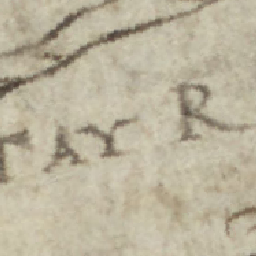 TAY R